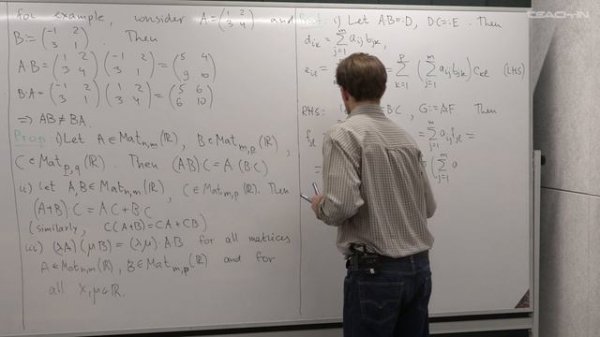 For example, consider A = (1 2 / 3 4) and
B := (-1 2 / 3 1). Then
AB = (1 2 / 3 4) (-1 2 / 3 1) = (5 4 / 9 10)
BA = (-1 2 / 3 1) (1 2 / 3 4) = (5 6 / 6 10)
⇒ AB ≠ BA.
Prop i) Let A ∈ Mat_{n,m}(ℝ), B ∈ Mat_{m,p}(ℝ),
C ∈ Mat_{p,q}(ℝ). Then (AB)C = A(BC)
ii) Let A,B ∈ Mat_{n,m}(ℝ), C ∈ Mat_{m,p}(ℝ). Then
(A+B)C = AC + BC
(similarly, C(A+B) = CA + CB)
iii) (λA)(μB) = (λμ) AB for all matrices
A ∈ Mat_{n,m}(ℝ), B ∈ Mat_{m,p}(ℝ) and for
all λ,μ ∈ ℝ.
i) Let AB =: D, DC =: E. Then
d_{ik} = Σ_{j=1}^{m} a_{ij} b_{jk},
= Σ_{k=1}^{p} (Σ_{j=1}^{m} a_{ij} b_{jk}) c_{kl} (LHS)
RHS: BC, G := AF. Then
= Σ_{j=1}^{m} a_{ij} f_{jl} =
= (Σ_{j=1}^{m} a
TEACH-IN